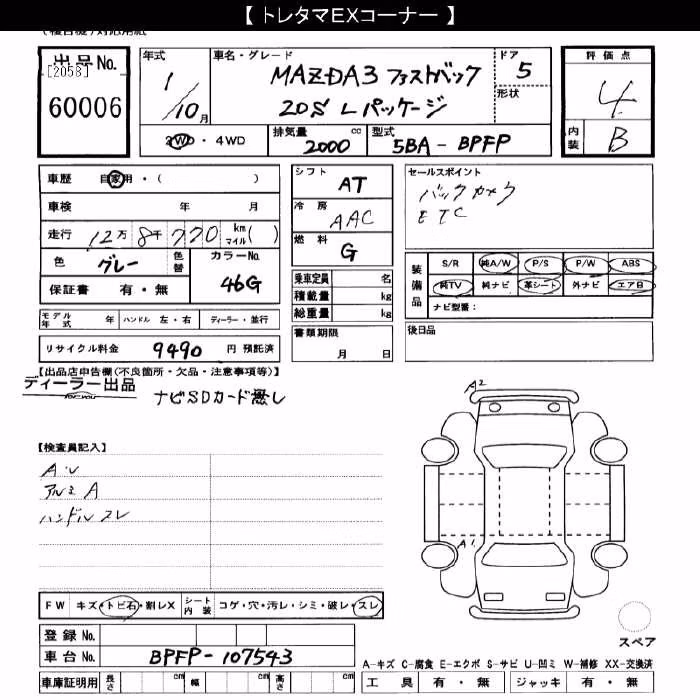 【 トレタマEXコーナー 】
出品No.
[2058]
60006
年式
1/10月
車名・グレード
MAZDA3 ファストバック
20S Lパッケージ
ドア
5
形状
評価点
4
内装
B
2WD・4WD
排気量
2000 cc
型式
5BA-BPFP
車歴 自家用・( )
車検 年 月
走行 12万8千770 km マイル( )
色 グレー 色替
カラーNo. 46G
保証書 有・無
シフト
AT
冷房
AAC
燃料
G
乗車定員 名
積載量 kg
総重量 kg
セールスポイント
バックカメラ
ETC
装備品
S/R 純A/W P/S P/W ABS
純TV 純ナビ 革シート 外ナビ エアB
ナビ型番:
モデル年式 年 ハンドル 左・右 ディーラー・並行
リサイクル料金 9490 円 預託済
書類期限
月 日
後日品
【出品店申告欄(不良箇所・欠品・注意事項等)】
ディーラー出品
for you
ナビSDカード無し
A2
【検査員記入】
A・U
アルミ A
ハンドル スレ
A1
FW キズ・トビ石・割レX
シート内装 コゲ・穴・汚レ・シミ・破レ・スレ
スペア
登録No.
車台No. BPFP-107543
車庫証明用 長さ cm 幅 cm 高さ cm
A-キズ C-腐食 E-エクボ S-サビ U-凹ミ W-補修 XX-交換済
工具 有・無 ジャッキ 有・無